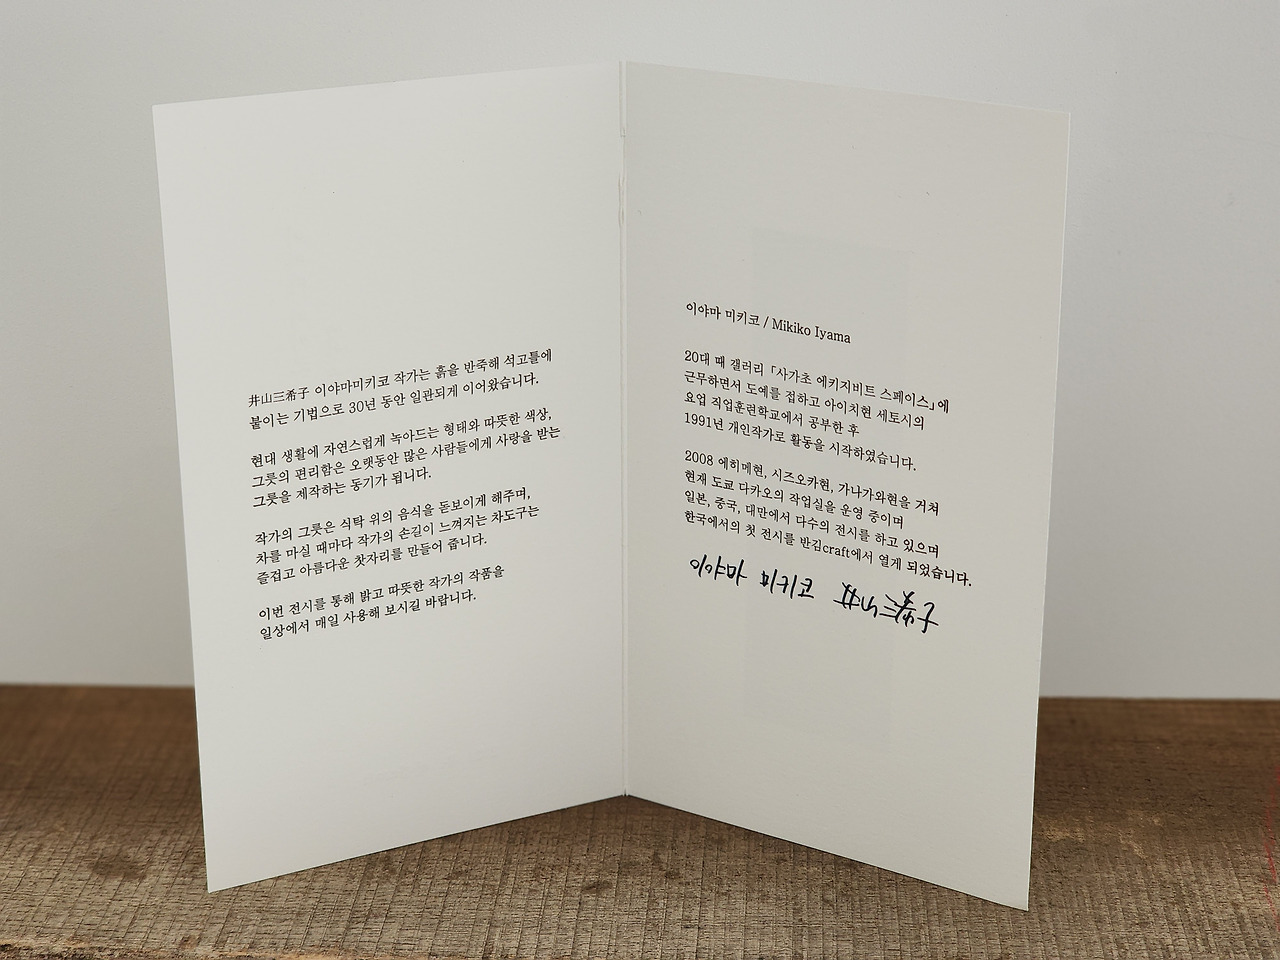 井山三希子 이야마미키코 작가는 흙을 반죽해 석고틀에
붙이는 기법으로 30년 동안 일관되게 이어왔습니다.
현대 생활에 자연스럽게 녹아드는 형태와 따뜻한 색상,
그릇의 편리함은 오랫동안 많은 사람들에게 사랑을 받는
그릇을 제작하는 동기가 됩니다.
작가의 그릇은 식탁 위의 음식을 돋보이게 해주며,
차를 마실 때마다 작가의 손길이 느껴지는 차도구는
즐겁고 아름다운 찻자리를 만들어 줍니다.
이번 전시를 통해 밝고 따뜻한 작가의 작품을
일상에서 매일 사용해 보시길 바랍니다.
이야마 미키코 / Mikiko Iyama
20대 때 갤러리 「사가초 에키지비트 스페이스」에
근무하면서 도예를 접하고 아이치현 세토시의
요업 직업훈련학교에서 공부한 후
1991년 개인작가로 활동을 시작하였습니다.
2008 에히메현, 시즈오카현, 가나가와현을 거쳐
현재 도쿄 다카오의 작업실을 운영 중이며
일본, 중국, 대만에서 다수의 전시를 하고 있으며
한국에서의 첫 전시를 반김craft에서 열게 되었습니다.
이야마 미키코 井山三希子